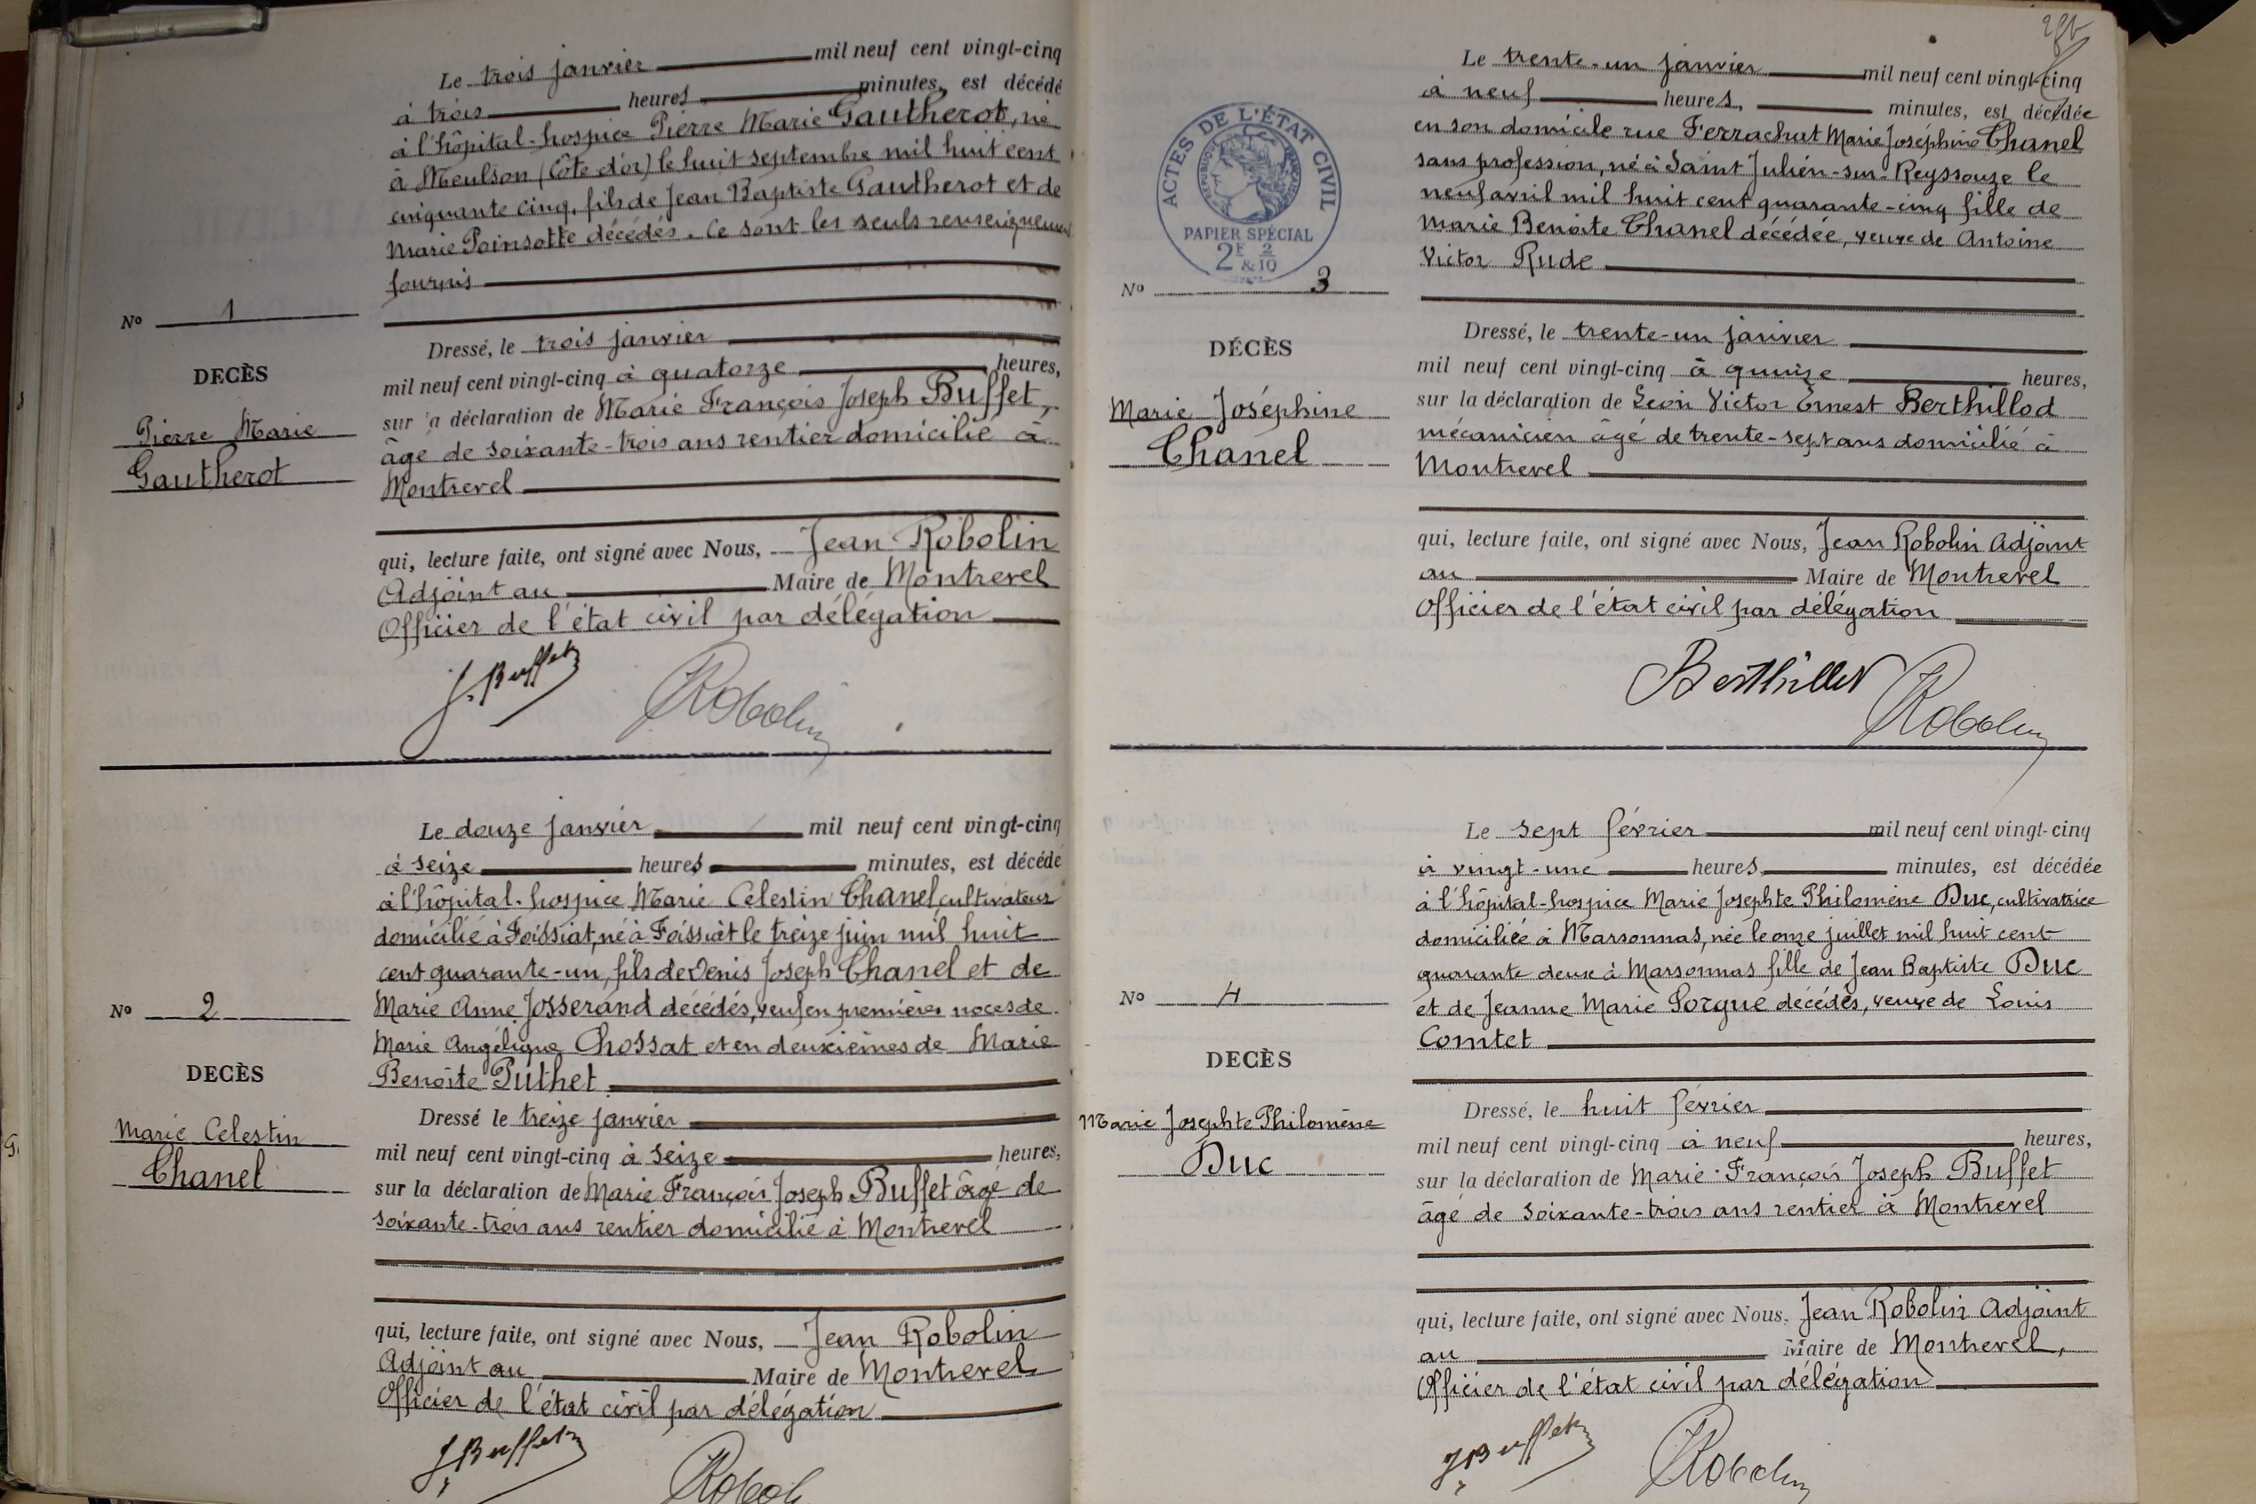 Le trois janvier mil neuf cent vingt-cinq
à trois heures minutes, est décédé
à l'hôpital-hospice Pierre Marie Gautherot, né
à Meulson (Côte d'or) le huit septembre mil huit cent
cinquante cinq, fils de Jean Baptiste Gautherot et de
Marie Poinsotte décédés. Ce sont les seuls renseignements
fournis
No 1
DECÈS
Pierre Marie
Gautherot
Dressé, le trois janvier
mil neuf cent vingt-cinq à quatorze heures,
sur la déclaration de Marie François Joseph Buffet,
âgé de soixante-trois ans rentier domicilié à
Montrevel
qui, lecture faite, ont signé avec Nous, Jean Robolin
Adjoint au Maire de Montrevel
Officier de l'état civil par délégation
J. Buffet Robolin
Le douze janvier mil neuf cent vingt-cinq
à seize heures minutes, est décédé
à l'hôpital-hospice Marie Celestin Chanel, cultivateur
domicilié à Foissiat, né à Foissiat le treize juin mil huit
cent quarante-un, fils de Denis Joseph Chanel et de
Marie Anne Josserand décédés, veuf en premières noces de
Marie Angélique Chossat et en deuxièmes de Marie
Benoîte Puthet
No 2
DECÈS
Marie Celestin
Chanel
Dressé le treize janvier
mil neuf cent vingt-cinq à seize heures,
sur la déclaration de Marie François Joseph Buffet âgé de
soixante-trois ans rentier domicilié à Montrevel
qui, lecture faite, ont signé avec Nous, Jean Robolin
Adjoint au Maire de Montrevel
Officier de l'état civil par délégation
J. Buffet Robol
ACTES DE L'ÉTAT CIVIL
RÉPUBLIQUE FRANÇAISE
PAPIER SPÉCIAL
2F & 2/10
Le trente-un janvier mil neuf cent vingt-cinq
à neuf heures, minutes, est décédée
en son domicile rue Ferrachat Marie Joséphine Chanel
sans profession, né à Saint Julien-sur-Reyssouze le
neuf avril mil huit cent quarante-cinq fille de
Marie Benoite Chanel décédée, veuve de Antoine
Victor Rude
No 3
DÉCÈS
Marie Joséphine
Chanel
Dressé, le trente-un janvier
mil neuf cent vingt-cinq à quinze heures,
sur la déclaration de Leon Victor Ernest Berthillod
mécanicien âgé de trente-sept ans domicilié à
Montrevel
qui, lecture faite, ont signé avec Nous, Jean Robolin Adjoint
au Maire de Montrevel
Officier de l'état civil par délégation
Robolin
Le sept février mil neuf cent vingt-cinq
à vingt-une heures minutes, est décédée
à l'hôpital-hospice Marie Josephte Philomène Duc, cultivatrice
domiciliée à Marsonnas, née le onze juillet mil huit cent
quarante deux à Marsonnas fille de Jean Baptiste Duc
et de Jeanne Marie Sorgue décédés, veuve de Louis
Comtet
No 4
DECÈS
Marie Josephte Philomène
Duc
Dressé, le huit février
mil neuf cent vingt-cinq à neuf heures,
sur la déclaration de Marie-François Joseph Buffet
âgé de soixante-trois ans rentier à Montrevel
qui, lecture faite, ont signé avec Nous. Jean Robolin Adjoint
au Maire de Montrevel,
Officier de l'état civil par délégation
J. Buffet Robolin